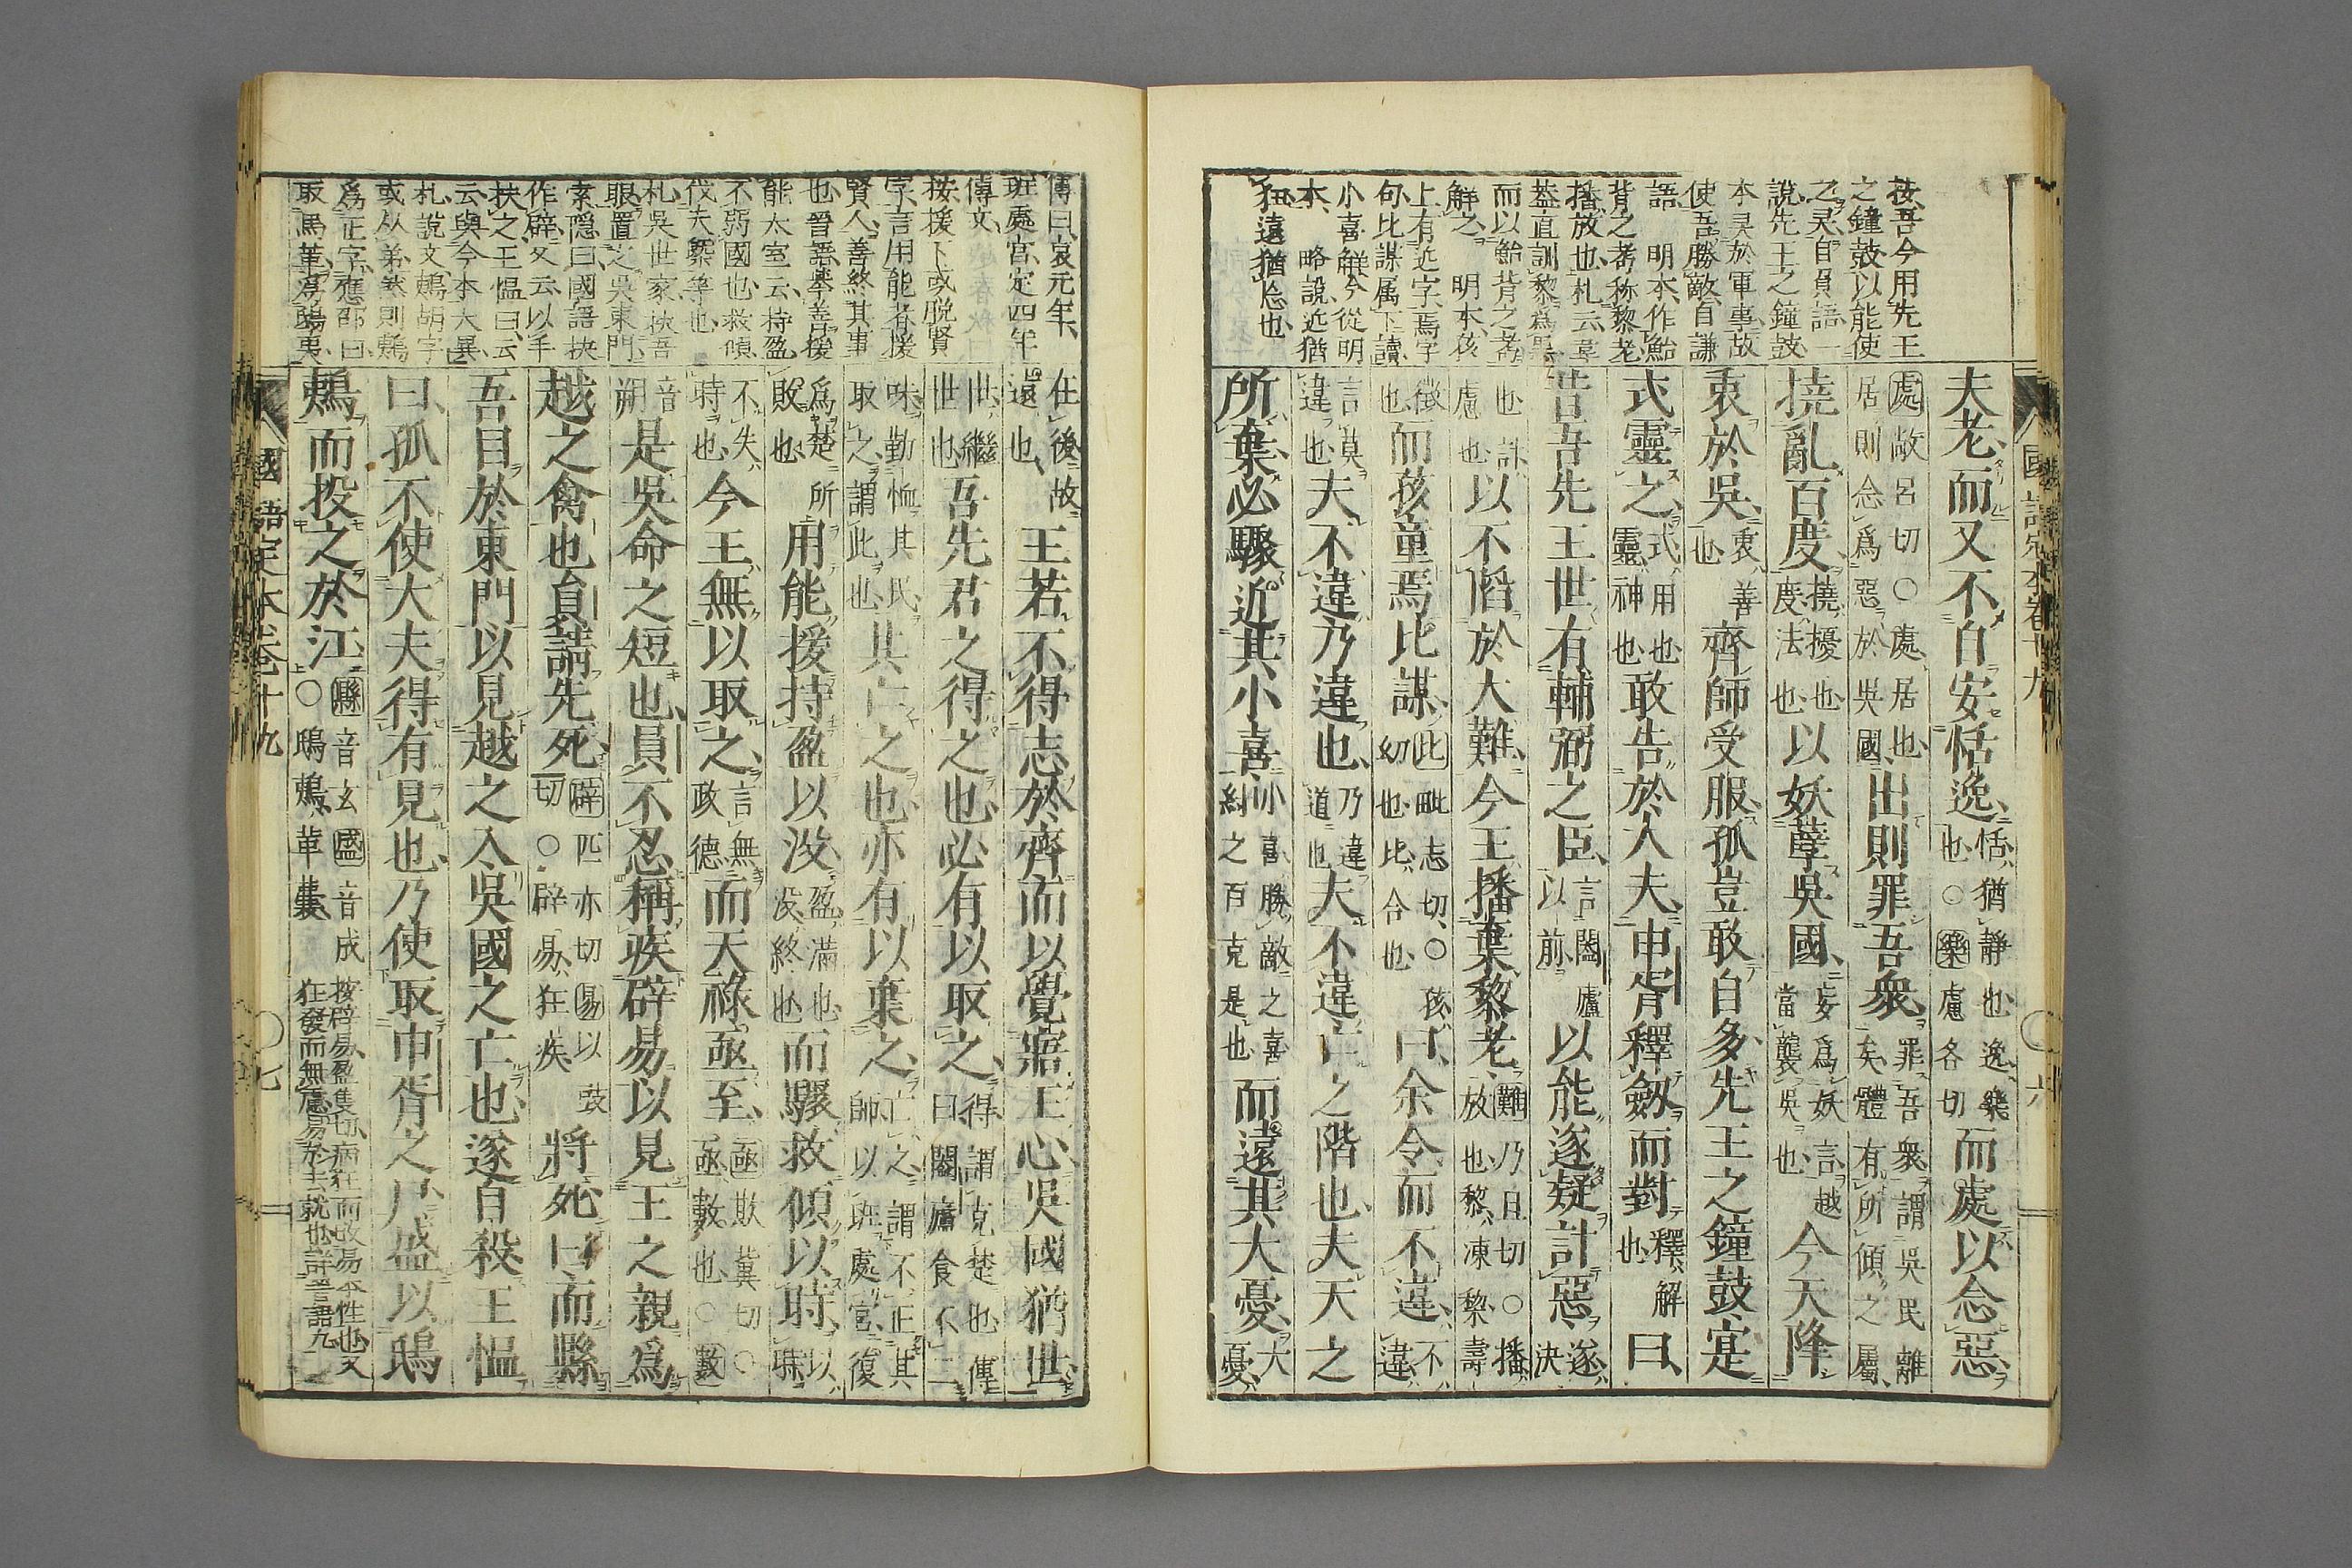 按吾今用先王
之鐘鼓以能使
之㚑自負語一
說先王之鐘鼓
本㚑於軍事故
使吾勝敵自謙
語 明本作鮐
背之耇称黎老
播放也札云韋
葢直訓黎爲
而以鮐背之耇
解之 明本孩
上有近字焉字
句比謀属下讀
小喜觧今從明
本 略說近猶
狃遠猶忘也
夫老而又不自安恬逸恬猶靜也逸樂也○樂盧各切而處以念惡
處敞呂切○處居也居則念爲惡於吳國出則罪吾衆罪吾衆謂吳民離矣體有所傾之屬
撓亂百度撓擾也度法也以妖孽吳國妄爲妖言越當襲吳也今天降
衷於吳衷善也齊師受服孤豈敢自多先王之鐘鼓寔
式靈之式用也靈神也敢告於大夫申胥釋劔而對釋解也曰
昔吾先王世有輔弼之臣言闔廬以前以能遂疑計惡遂決
也計慮也以不䧟於大難今王播棄黎老難乃旦切○播放也黎凍黎壽
徵也而孩童焉比謀比毗志切○孩幼也比合也曰余令而不違不違
言莫違也夫不違乃違也乃違道也夫不違亡之階也夫天之
所棄必驟近其小喜小喜勝敵之喜糾之百克是也而遠其大憂大憂
國語定本卷十九
六
傳曰哀元年
班處宮定四年
傳文
按援下或脱賢
字言用能者援
賢人善終其事
也晉語舉善援
能太室云持盈
不弱國也救傾
伐夫槩等也
札吳世家抉吾
眼置之吳東門
索隱曰國語抉
作辟又云以手
抉之王愠曰云
云與今本大異
札說文鵜胡字
或从弟然則鵜
爲正字應邵曰
取馬革爲鴟夷
在後故遠也王若不得志於齊而以覺寤王心吳國猶世
世繼世也吾先君之得之也必有以取之得謂克楚也傳曰闔廬食不二
味勤恤其民取之謂此也其亡之也亦有以棄之亡之謂不正其師以班處宮復
爲楚所敗也用能援持盈以没盈滿也没終也而驟救傾以時以時
不失時也今王無以取之言無政德而天祿亟至亟欺冀切○數亟數也
音朔是吳命之短也員不忍稱疾辟易以見王之親爲
越之禽也員請先死辟匹亦切易以豉切○辟易狂疾將死曰而縣
吾目於東門以見越之入吳國之亡也遂自殺王愠
曰孤不使大夫得有見也乃使取申胥之尸盛以鴟
鵜而投之於江縣音玄盛音成○鴟鵜革囊按辟易盈隻切病狂而改易本性也又狂發而無慮易於去就也詳晉語九
國語定本卷十九
七